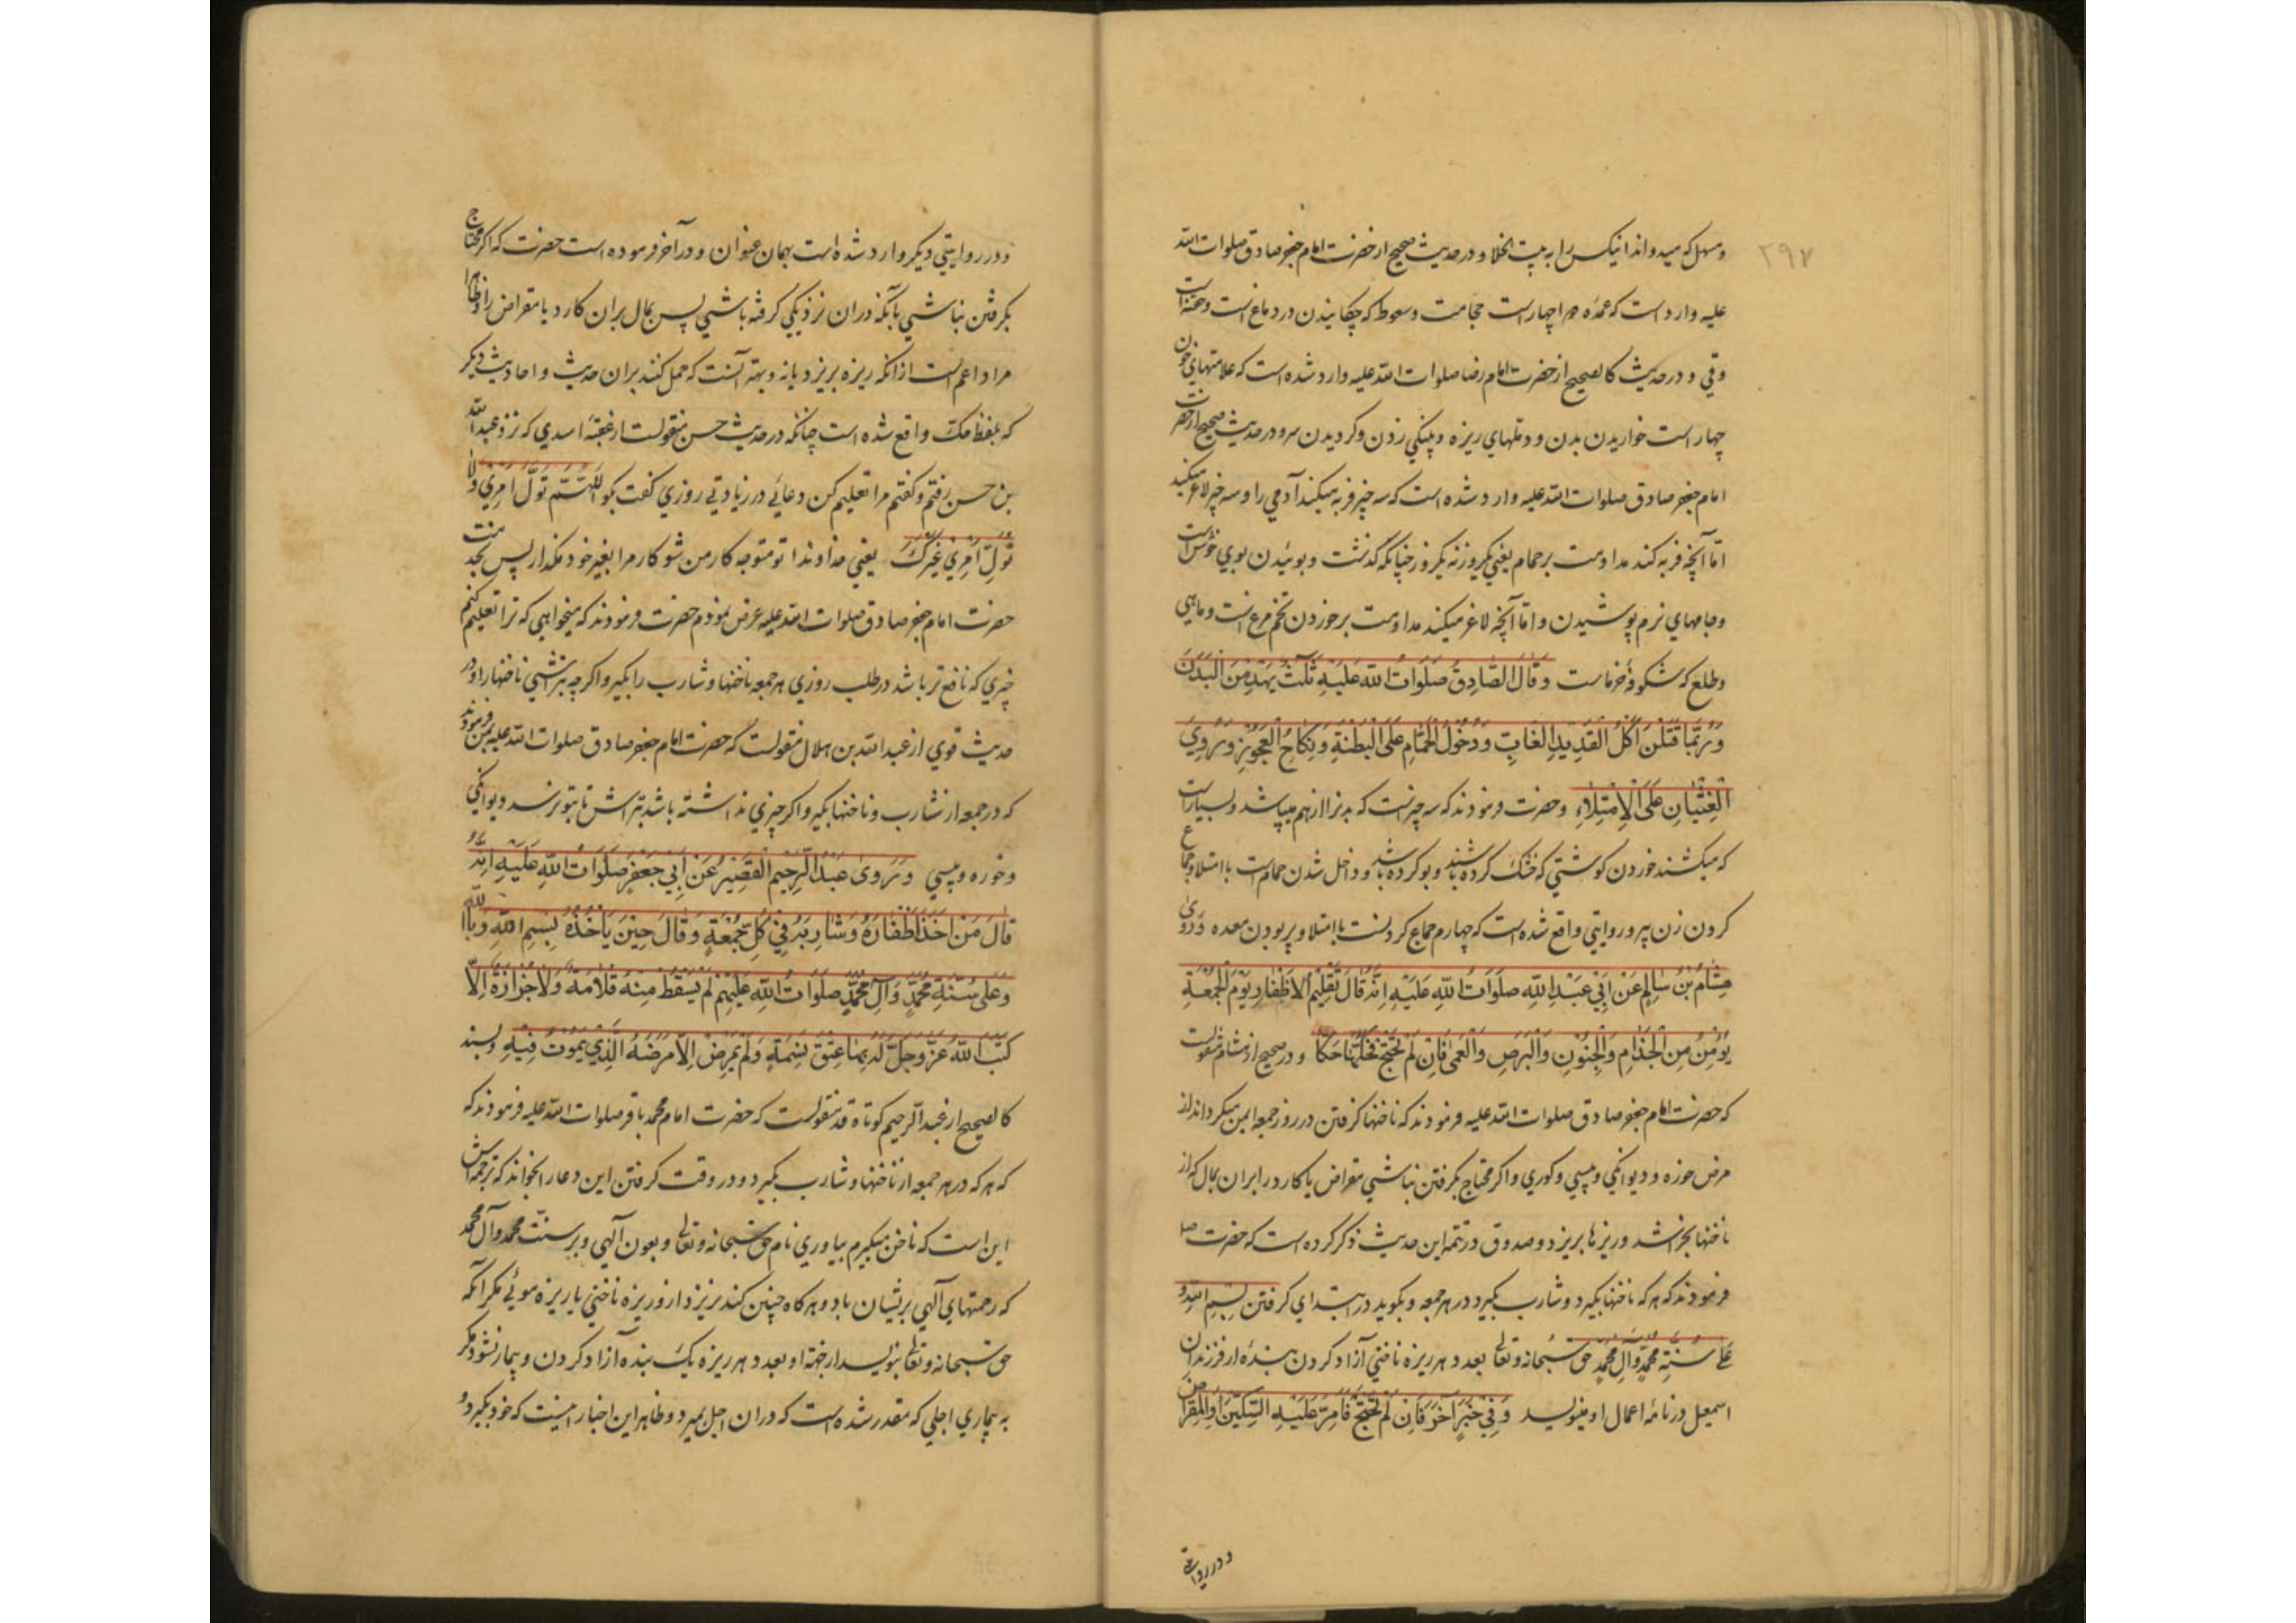 ۲۹۷
و مسهل که میدواند اینکس را به بیت الخلا و در حدیث صحیح از حضرت امام جعفر صادق صلوات الله
علیه وارد است که عمده دوا چهار است حجامت و سعوط که چکانیدن در دماغ است و حقنه است
وقی و در حدیث کالصحیح از حضرت امام رضا صلوات الله علیه وارد شده است که علامتهای خون
چهار است خواریدن بدن و دملهای ریزه و پینکی زدن و کردیدن سر و در حدیث صحیح از حضرت
امام جعفر صادق صلوات الله علیه وارد شده است که سه چیز فربه میکند آدمی را و سه چیز لاغر میکند
اما آنچه فربه کند مداومت بر حمام یعنی یکروز نه یکروز چنانکه گذشت و بوئیدن بوی خوش است
و جامهای نرم پوشیدن و اما آنچه لاغر میکند مداومت بر خوردن تخم مرغ است و ماهی
و طلع که شکوفه خرماست وَقَالَ الصَّادِقُ صَلَوَاتُ اللهِ عَلَيْهِ ثَلٰثٌ يَهْدِمْنَ الْبَدَنَ
وَرُبَّمَا قَتَلْنَ اَكْلُ الْقَدِيدِ الْغَابِّ وَدُخُولُ الْحَمَّامِ عَلَى الْبِطْنَةِ وَنِكَاحُ الْعَجُوزِ وَرُوِيَ
الْغِشْيَانِ عَلَى الْاِمْتِلَاءِ و حضرت فرمودند که سه چیز است که بدنرا از هم میپاشد و بسیار است
که میکشند خوردن کوشتی که خشک کرده باشند و بو کرده باشد و داخل شدن حمام است با امتلا و جماع
کردن زن پیر و روایتی واقع شده است که چهارم جماع کردنست با امتلا و پر بودن معده وَرَوٰى
هِشَامُ بْنُ سَالِمٍ عَنْ اَبِي عَبْدِ اللهِ صَلَوَاتُ اللهِ عَلَيْهِ اَنَّهُ قَالَ تَقْلِيمُ الْاَظْفَارِ يَوْمَ الْجُمُعَةِ
يُؤْمِنُ مِنَ الْجُذَامِ وَالْجُنُونِ وَالْبَرَصِ وَالْعَمٰى فَاِنْ لَمْ تَحْتَجْ فَحُكَّهَا حَكًّا و در صحیح از هشام منقولست
که حضرت امام جعفر صادق صلوات الله علیه فرمودند که ناخنها کرفتن در روز جمعه ایمن میکرداند از
مرض خوره و دیوانکی و پیسی و کوری و اکر محتاج بکرفتن نباشی مقراض یا کارد را بران بمال که از
ناخنها بخراشد و ریزها بریزد و صدوق در تتمه این حدیث ذکر کرده است که حضرت صا
فرمودند که هر که ناخنها بکیرد و شارب بکیرد در هر جمعه و بکوید در ابتدای کرفتن بِسْمِ اللهِ وَ
عَلٰى سُنَّةِ مُحَمَّدٍ وَآلِ مُحَمَّدٍ حق سبحانه و تعالی بعدد هر ریزه ناخنی آزاد کردن بنده از فرزندان
اسمعیل در نامه اعمال او مینویسد وَفِي خَبَرٍ آخَرَ فَاِنْ لَمْ تَحْتَجْ فَاَمِرَّ عَلَيْهِ السِّكِّينَ اَوِ الْمِقْرَاضَ
و در روایتی
و در روایتی دیکر وارد شده است بهمان عنوان و در آخر فرموده است حضرت که اکر محتاج
بکرفتن نباشی بآنکه دران نزدیکی کرفته باشی پس بمال بران کارد یا مقراض را و ظاهرا
مراد اعم است از انکه ریزه بریزد یا نه و بهتر آنست که حمل کنند بران حدیث و احادیث دیکر
که بلفظ حک واقع شده است چنانکه در حدیث حسن منقولست از عقبه اسدی که نزد عبد الله
بن حسن رفتم و کفتم مرا تعلیم کن دعائی در زیادتی روزی کفت بکو اَللّٰهُمَّ تَوَلَّ اَمْرِي وَلَا
تُوَلِّ اَمْرِي غَيْرَكَ یعنی خداوندا تو متوجه کار من شو و کار مرا بغیر خود مکذار پس بخدمت
حضرت امام جعفر صادق صلوات الله علیه عرض نمودم حضرت فرمودند که میخواهی که ترا تعلیم کنم
چیزی که نافع تر باشد در طلب روزی هر جمعه ناخنها و شارب را بکیر و اکرچه بتراشی ناخنها را و در
حدیث قوی از عبد الله بن هلال منقولست که حضرت امام جعفر صادق صلوات الله علیه بمن فرمودند
که در جمعه از شارب و ناخنها بکیر و اکر چیزی نداشته باشد بتراش تا بتو نرسد دیوانکی
و خوره و پیسی وَرَوٰى عَبْدُ الرَّحِيمِ الْقَصِيرُ عَنْ اَبِي جَعْفَرٍ صَلَوَاتُ اللهِ عَلَيْهِ اَنَّهُ
قَالَ مَنْ اَخَذَ اَظْفَارَهُ وَشَارِبَهُ فِي كُلِّ جُمُعَةٍ وَقَالَ حِينَ يَأْخُذُهُ بِسْمِ اللهِ وَبِاللهِ
وَعَلٰى سُنَّةِ مُحَمَّدٍ وَآلِ مُحَمَّدٍ صَلَوَاتُ اللهِ عَلَيْهِمْ لَمْ يَسْقُطْ مِنْهُ قُلَامَةٌ وَلَا جُزَازَةٌ اِلَّا
كَتَبَ اللهُ عَزَّ وَجَلَّ لَهُ بِهَا عِتْقَ نَسَمَةٍ وَلَمْ يَمْرَضْ اِلَّا مَرَضَهُ الَّذِي يَمُوتُ فِيهِ و بسند
کالصحیح از عبد الرحیم کوتاه قد منقولست که حضرت امام محمد باقر صلوات الله علیه فرمودند که
که هر که در هر جمعه از ناخنها و شارب بکیرد و در وقت کرفتن این دعا را بخواند که ترجمه اش
این است که ناخن میکیرم بیاوری نام حق سبحانه و تعالی و بعون آلهی و بر سنت محمد و آل محمد
که رحمتهای آلهی بریشان باد و هر کاه چنین کند نریزد ازو ریزه ناخنی یا ریزه موئی مکر آنکه
حق سبحانه و تعالی بنویسد از جهة او بعدد هر ریزه یک بنده آزاد کردن و بیمار نشود مکر
به بیماری اجلی که مقدر شده است که دران اجل بمیرد و ظاهر این اخبار اینست که خود بکیرد و